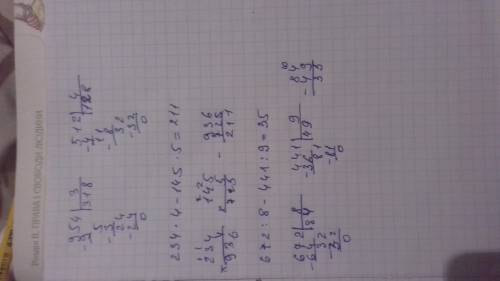 Розділ II. ПРАВА І СВОБОДИ ЛЮДИНИ
954 | 3
-9 | 318
5
-3
24
-24
0
512 | 4
-4 | 128
11
-8
32
-32
0
234 · 4 - 145 · 5 = 211
1
234
× 4
936
2 2
145
× 5
725
- 936
725
211
672 : 8 - 441 : 9 = 35
672 | 8
-64 | 84
32
-32
0
441 | 9
-36 | 49
81
-81
0
84
- 49
35